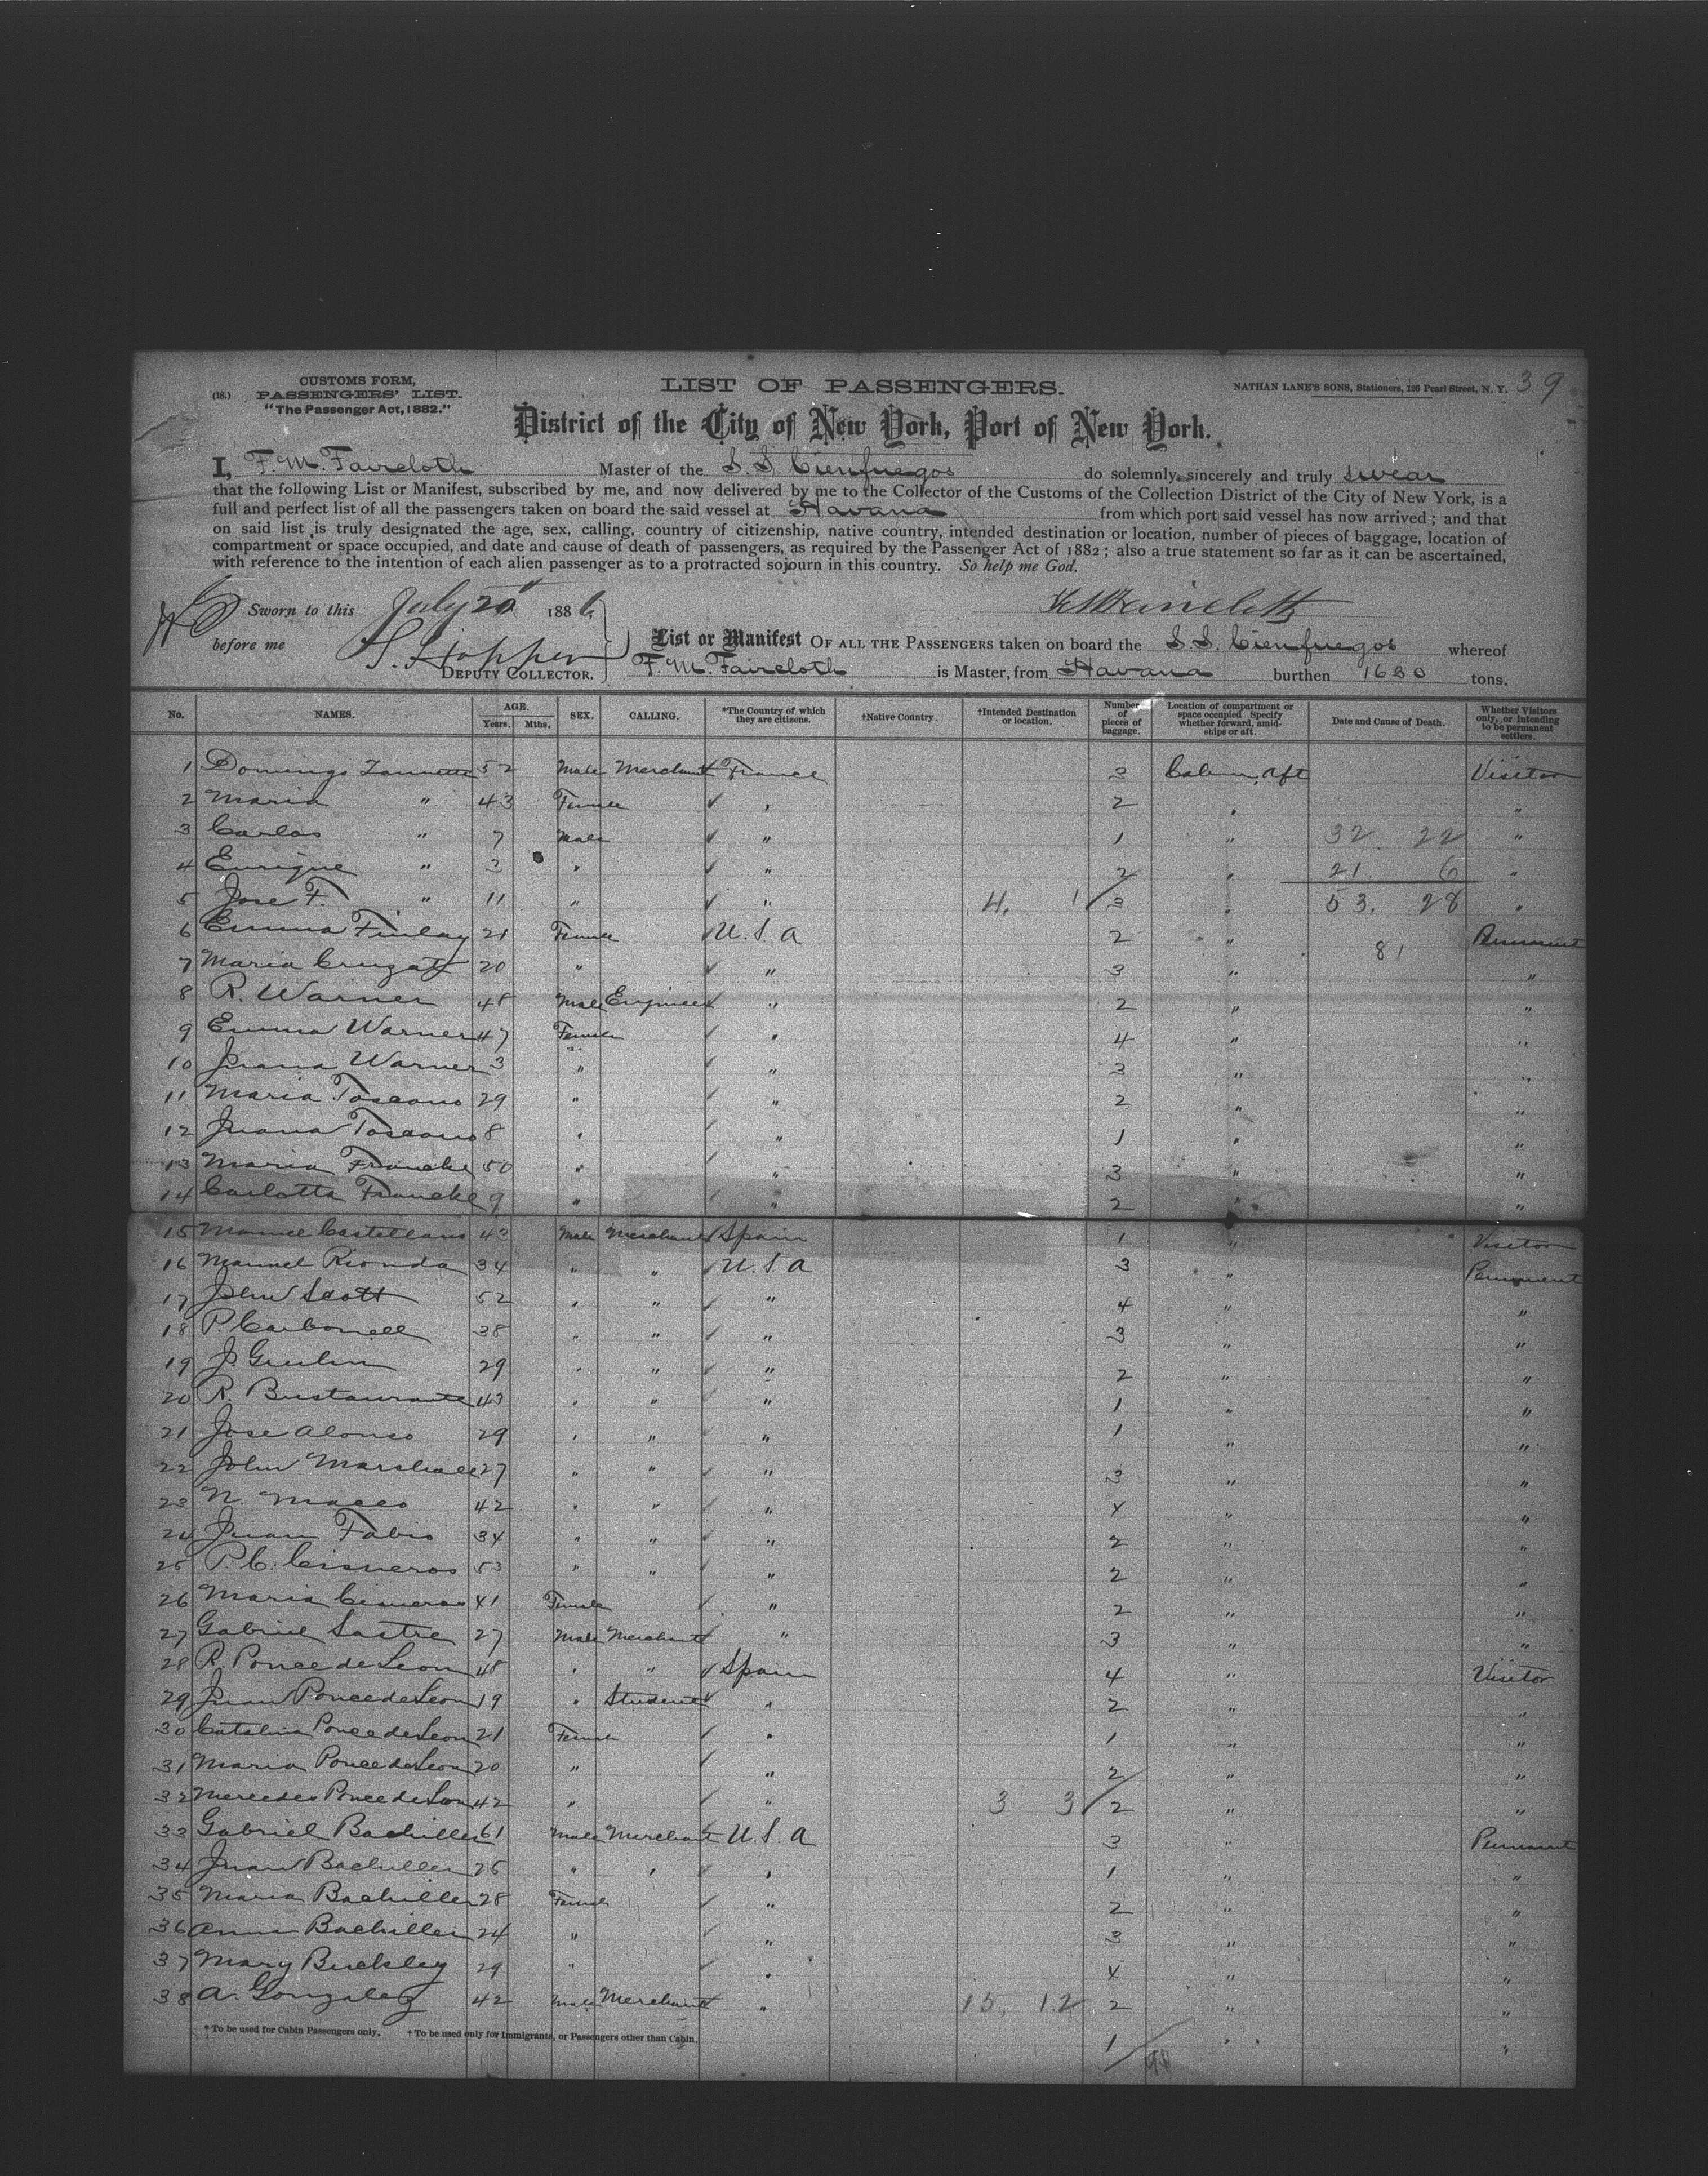 CUSTOMS FORM,
(18.) PASSENGERS' LIST.
"The Passenger Act, 1882."
LIST OF PASSENGERS.
NATHAN LANE'S SONS, Stationers, 126 Pearl Street, N. Y. 39
District of the City of New York, Port of New York.
I, F. M. Faircloth Master of the S. S. Cienfuegos do solemnly, sincerely and truly swear
that the following List or Manifest, subscribed by me, and now delivered by me to the Collector of the Customs of the Collection District of the City of New York, is a
full and perfect list of all the passengers taken on board the said vessel at Havana from which port said vessel has now arrived; and that
on said list is truly designated the age, sex, calling, country of citizenship, native country, intended destination or location, number of pieces of baggage, location of
compartment or space occupied, and date and cause of death of passengers, as required by the Passenger Act of 1882; also a true statement so far as it can be ascertained,
with reference to the intention of each alien passenger as to a protracted sojourn in this country. So help me God.
Sworn to this July 20 1886 F M Faircloth
before me S. Hopper
DEPUTY COLLECTOR.
List or Manifest OF ALL THE PASSENGERS taken on board the S. S. Cienfuegos whereof
F. M. Faircloth is Master, from Havana burthen 1630 tons.
No. NAMES. AGE. Years. Mths. SEX. CALLING. *The Country of which they are citizens. †Native Country. †Intended Destination or location. Number of pieces of baggage. Location of compartment or space occupied Specify whether forward, amidships or aft. Date and Cause of Death. Whether Visitors only, or intending to be permanent settlers.
1 Domingo 52 Male Merchant France 3 Cabin, aft Visitor
2 Maria " 43 Female " 2 " "
3 Carlos " 7 Male " 1 " 32 22 "
4 Enrique " 3 " " 2 " 21 6 "
5 Jose F. " 11 " " 4. 1 3 " 53. 28 "
6 Emma Finlay 21 Female U. S. A 2 " 81 Permanent
7 Maria Cruzat 20 " " 3 " "
8 R. Warner 48 Male Engineer " 2 " "
9 Emma Warner 47 Female " 4 " "
10 Juana Warner 3 " " 3 " "
11 Maria Toscano 29 " " 2 " "
12 Juana Toscano 8 " " 1 " "
13 Maria Francke 50 " " 3 " "
14 Carlotta Francke 9 " " 2 " "
15 Manuel Castellano 43 Male Merchant Spain 1 " Visitor
16 Manuel Rionda 34 " " U. S. A 3 " Permanent
17 John Scott 52 " " " 4 " "
18 P. Carbonell 38 " " " 3 " "
19 J. 29 " " " 2 " "
20 R. Bustamante 43 " " " 1 " "
21 Jose Alonso 29 " " " 1 " "
22 John Marshall 27 " " " 3 " "
23 N. 42 " " " 4 " "
24 Juan Fabio 34 " " " 2 " "
25 P. C. Cisneros 53 " " " 2 " "
26 Maria Cisneros 41 Female " 2 " "
27 Gabriel Sastre 27 Male Merchant " 3 " "
28 R. Ponce de Leon 48 " " Spain 4 " Visitor
29 Juan Ponce de Leon 19 " Student " 2 " "
30 Catalina Ponce de Leon 21 Female " 1 " "
31 Maria Ponce de Leon 20 " " 2 " "
32 Mercedes Ponce de Leon 42 " " 3 3 2 " "
33 Gabriel Bachiller 61 Male Merchant U. S. A 3 " Permanent
34 Juan Bachiller 25 " " " 1 " "
35 Maria Bachiller 28 Female " 2 " "
36 Anna Bachiller 24 " " 3 " "
37 Mary Buckley 29 " " 4 " "
38 A. Gonzalez 42 Male Merchant " 15, 12 2 " "
1 " "
* To be used for Cabin Passengers only. † To be used only for Immigrants, or Passengers other than Cabin.